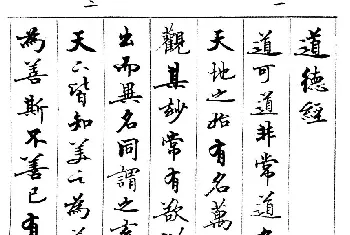 一
道德經
道可道非常道
天地之始有名萬
觀其妙常有欲
二
出而異名同謂之玄
天下皆知美之為
為善斯不善已有